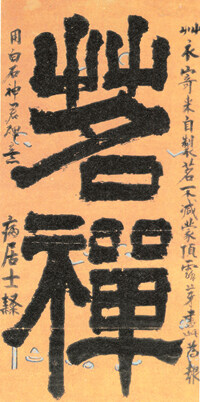 茗禪
艸衣寄來自製茗不減蒙頂露芽書此爲報
用白石神君碑意
病居士隷